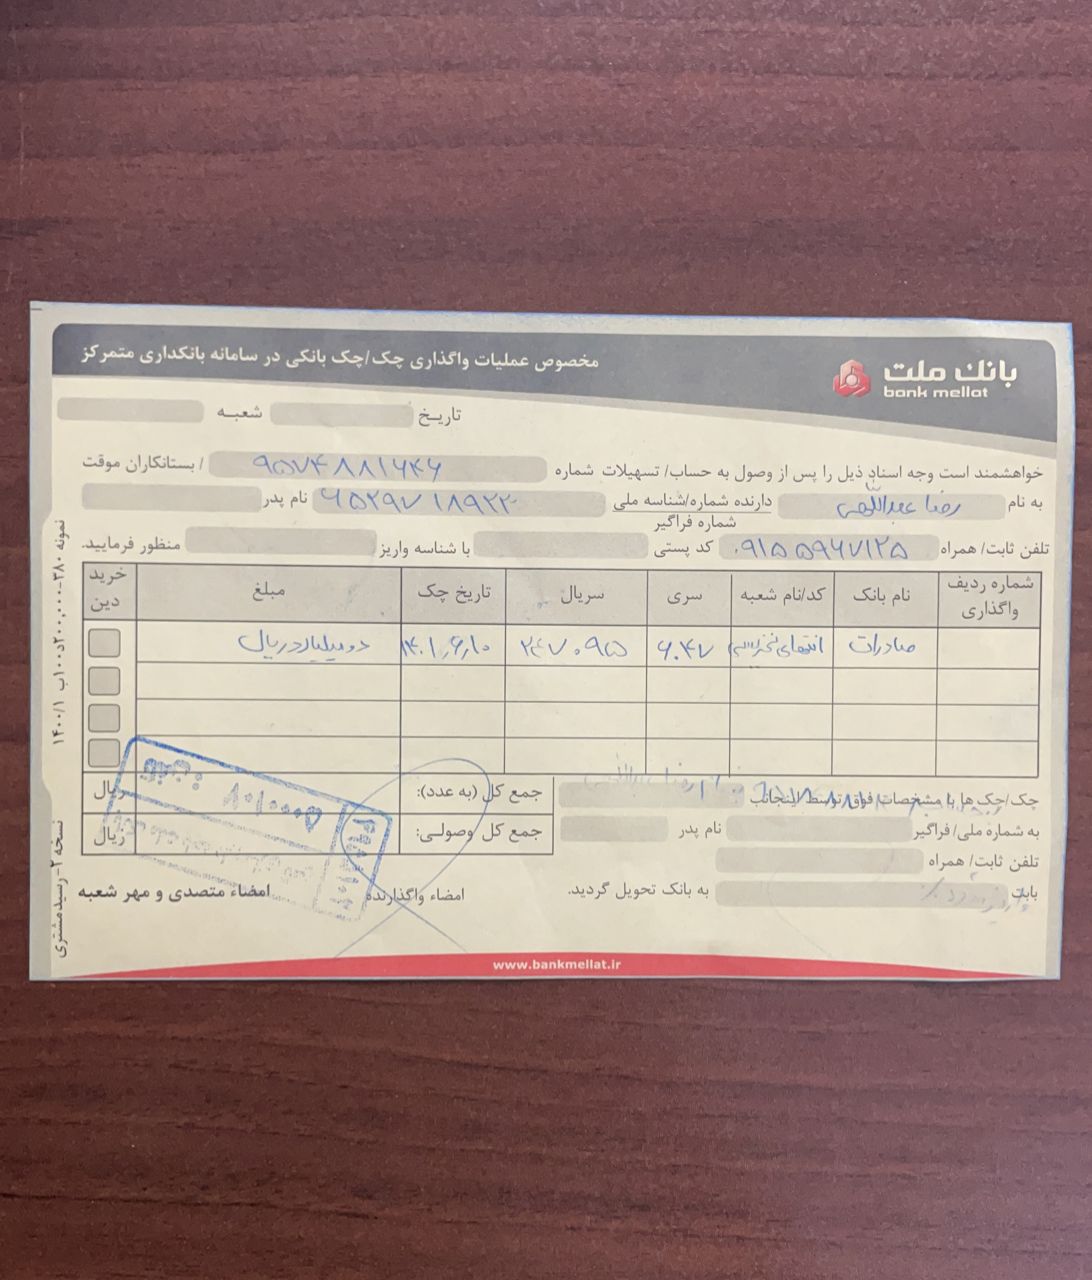 بانک ملت
bank mellat
مخصوص عملیات واگذاری چک/چک بانکی در سامانه بانکداری متمرکز
تاریخ شعبه
خواهشمند است وجه اسناد ذیل را پس از وصول به حساب/ تسهیلات شماره ۹۵۷۴۸۸۱۶۴۶ / بستانکاران موقت
به نام رضا عبداللهی دارنده شماره/شناسه ملی نام پدر
شماره فراگیر
تلفن ثابت/ همراه ۰۹۱۵۵۹۶۷۱۲۵ کد پستی با شناسه واریز منظور فرمایید.
شماره ردیف واگذاری نام بانک کد/نام شعبه سری سریال تاریخ چک مبلغ خرید دین
صادرات انتهای ۶۰۴۷ ۲۴۷۰۹۵ ۱۴۰۱,۶,۱۰ دو میلیارد ریال
جمع کل (به عدد): ریال
جمع کل وصولی: ریال
چک/چک ها با مشخصات فوق توسط اینجانب
به شماره ملی/ فراگیر نام پدر
تلفن ثابت/ همراه
بابت به بانک تحویل گردید.
امضاء واگذارنده امضاء متصدی و مهر شعبه
نسخه ۲- رسید مشتری
www.bankmellat.ir